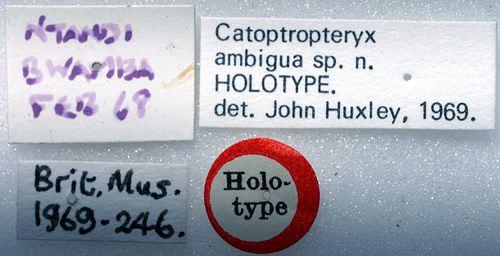 NTANDI
BWAMBA
FEB 68
Catoptropteryx
ambigua sp. n.
HOLOTYPE.
det. John Huxley, 1969.
Brit. Mus.
1969-246.
Holo-
type